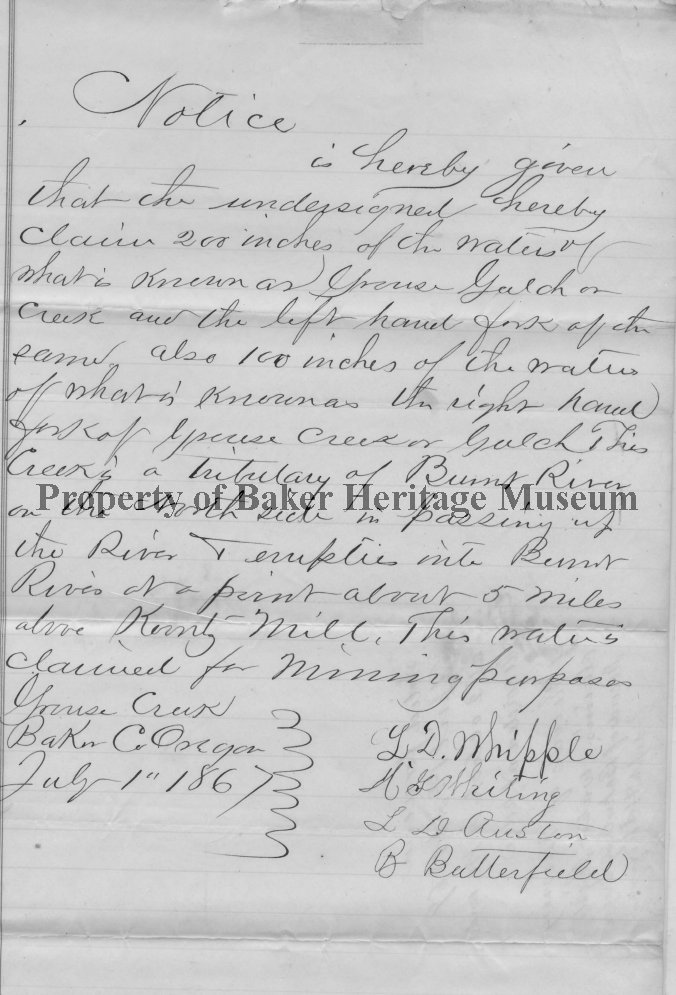 Notice
is hereby given
that the undersigned hereby
claim 200 inches of the waters of
what is known as Grouse Gulch or
Creek and the left hand fork of the
same also 100 inches of the waters
of what is known as the right hand
fork of Grouse Creek or Gulch This
Creek is a tributary of Burnt River
Property of Baker Heritage Museum
on the North side in passing up
the River & empties into Burnt
River at a point about 5 miles
above Koontz Mill. This water is
claimed for Mining purposes
Grouse Creek
Baker Co Oregon
July 1" 1867
L D. Whipple
Whiting
L D Auston
B Butterfield